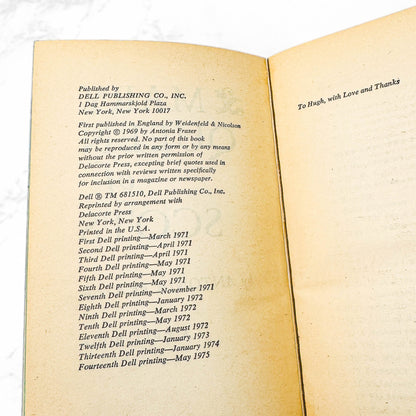 Published by
DELL PUBLISHING CO., INC.
1 Dag Hammarskjold Plaza
New York, New York 10017
First published in England by Weidenfeld & Nicolson
Copyright © 1969 by Antonia Fraser
All rights reserved. No part of this book
may be reproduced in any form or by any means
without the prior written permission of
Delacorte Press, excepting brief quotes used in
connection with reviews written specifically
for inclusion in a magazine or newspaper.
Dell ® TM 681510, Dell Publishing Co., Inc.
Reprinted by arrangement with
Delacorte Press
New York, New York
Printed in the U.S.A.
First Dell printing—March 1971
Second Dell printing—April 1971
Third Dell printing—April 1971
Fourth Dell printing—May 1971
Fifth Dell printing—May 1971
Sixth Dell printing—May 1971
Seventh Dell printing—November 1971
Eighth Dell printing—January 1972
Ninth Dell printing—March 1972
Tenth Dell printing—May 1972
Eleventh Dell printing—August 1972
Twelfth Dell printing—January 1973
Thirteenth Dell printing—January 1974
Fourteenth Dell printing—May 1975
To Hugh, with Love and Thanks